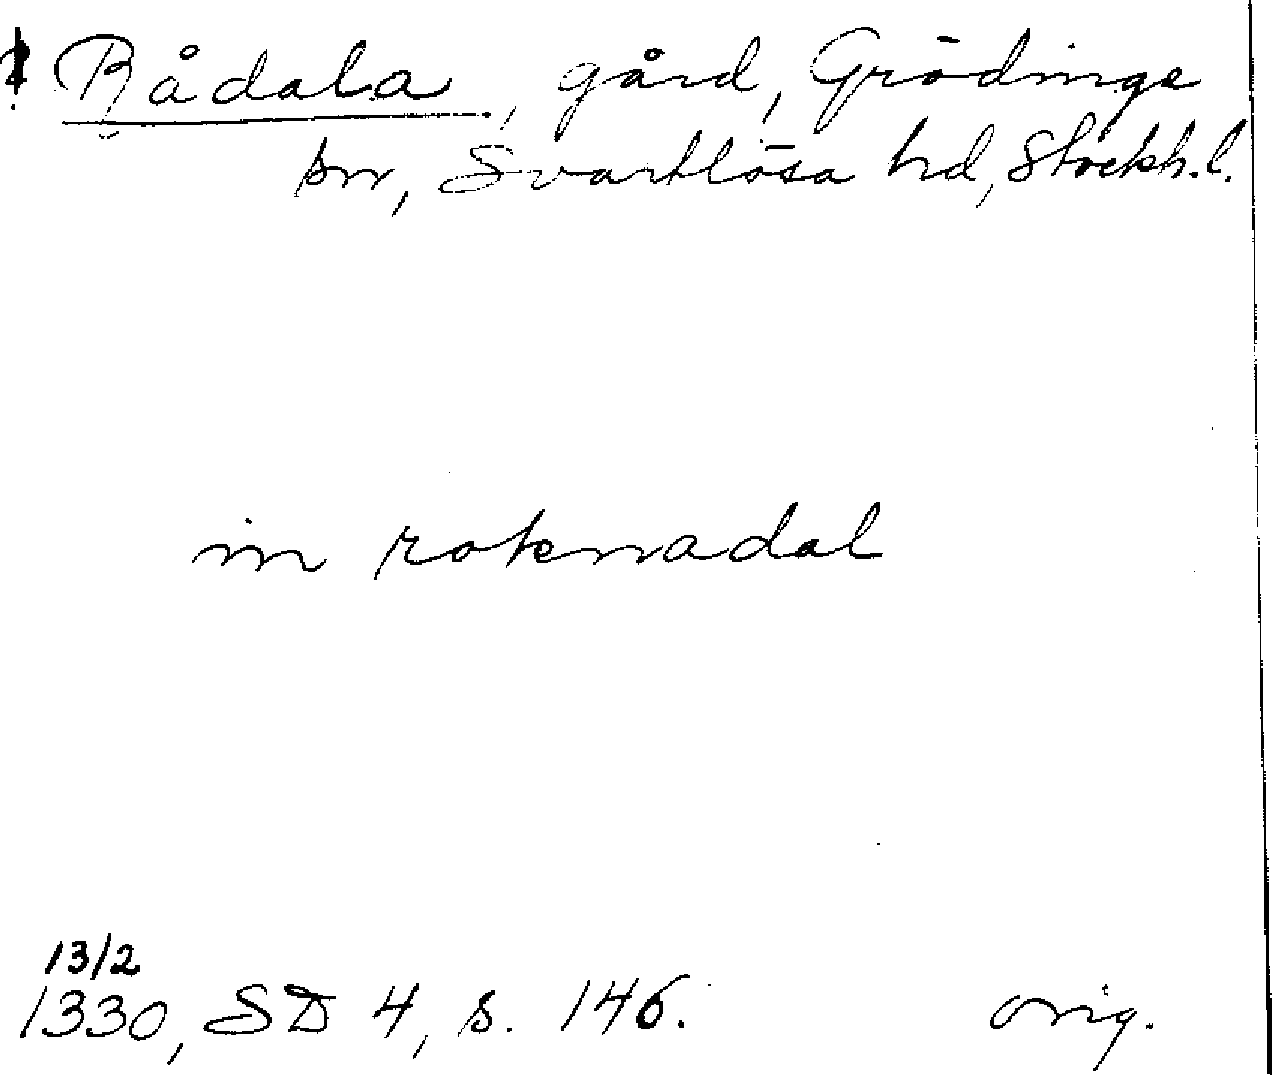 Rådala, gård, Grödinge
sn, Svartlösa hd, Stockh. l.
in roknadal
13/2
1330, SD 4, s. 146. orig.